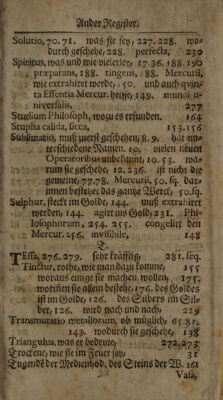 Ander Register.
Solutio, 70. 71. was sie sey, 227. 228. wo-
durch geschehe, 228. perfecta, 230
Spiritus, was und wie vielerley, 17. 36. 188. 190
præparans, 188. tingens, 188. Mercurii,
wie extrahiret werde, 50. und auch qvin-
ta Essentia Mercur. heisse, 149. mundi u-
niversalis, 277
Studium Philosoph. wozu es erfunden, 164
Stupha calida, sicca, 153. 156
Sublimatio, muß zuerst geschehen, 8. 9. hat un-
terschiedene Namen. 10. vielen neuen
Operatoribus unbekannt, 10. 53. wa-
rum sie geschehe, 12. 236. ist nicht die
gemeine, 77. 78. Mercurii, 50. sq. dar-
innen bestehet das gantze Werck, 50. sq.
Sulphur, steckt im Golde, 144. muß extrahiret
werden, 144. agirt ins Gold, 231. Phi-
losophorum, 254. 255. congelirt den
Mercur. 256. invisibile, 148
T.
TEssa, 276. 279. sehr kräfftig, 281. seq.
Tinctur, rothe, wie man dazu komme, 155
woraus einige sie machen wollen, 175
wo ist sie allein bestehe, 176. des Goldes
ist im Golde, 126. des Silbers im Sil-
ber, 126. wird nach und nach, 229
Transmutatio metallorum, ob müglich, 65. 81.
143. wodurch sie geschehe, 138
Triangulus, was er bedeute, 272. 273
Trockene, wie sie im Feuer sey, 31
Tugends der Medicin, od. des Steins der W. 161
Vasa,